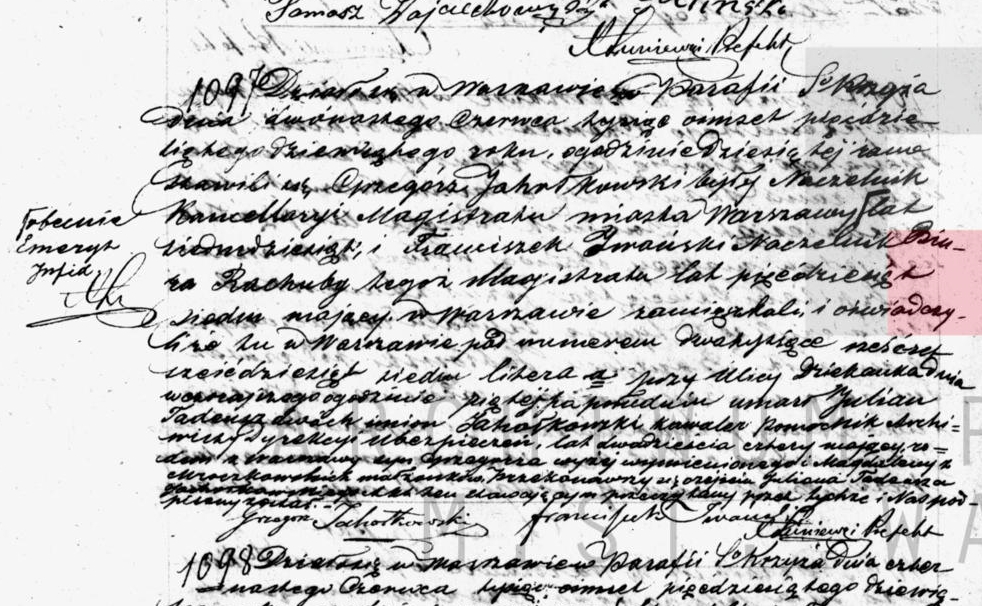 Tomasz Wojciechowski
Kuniewicz Prefekt
1097 Działo się w Warszawie w Parafii Sº Krzyża
dnia dwónastego Czerwca tysiąc ośmset pięćdzie-
siątego dziewiątego roku, o godzinie dziesiątej rano
stawili się Grzegórz Jahołkowski były Naczelnik
Kancellaryi Magistratu miasta Warszawy lat
siedmdziesiąt, i Franciszek Iwański Naczelnik Biu-
ra Rachuby tegoż Magistratu lat pięćdziesiąt
siedm mający, w Warszawie zamieszkali, i oświadczy-
li że tu w Warszawie pod numerem dwa tysiące sześćset
sześćdziesiąt siedm litera a przy Ulicy Dziekanka dnia
wczorajszego o godzinie piątej po południu umarł Julian
Tadeusz dwóch imion Jahołkowski kawaler pomocnik Archi-
wisty Dyrekcyi Ubezpieczeń, lat dwadzieścia cztery mający, ro-
dem z Warszawy syn Grzegorza wyżej wymienionego i Magdaleny z
małżonków. Przekonawszy się o zejściu Juliana Tadeusza
Jahołkowskiego Akt ten stawającym przeczytany przez tychże i Nas pod-
pisany został.
Grzegorz Jahołkowski Franciszek Iwański
Kuniewicz Prefekt
i obecnie
Emeryt
1098 Działo się w Warszawie w Parafii Sº Krzyża dnia czter-
nastego Czerwca tysiąc ośmset pięćdziesiątego dziewią-